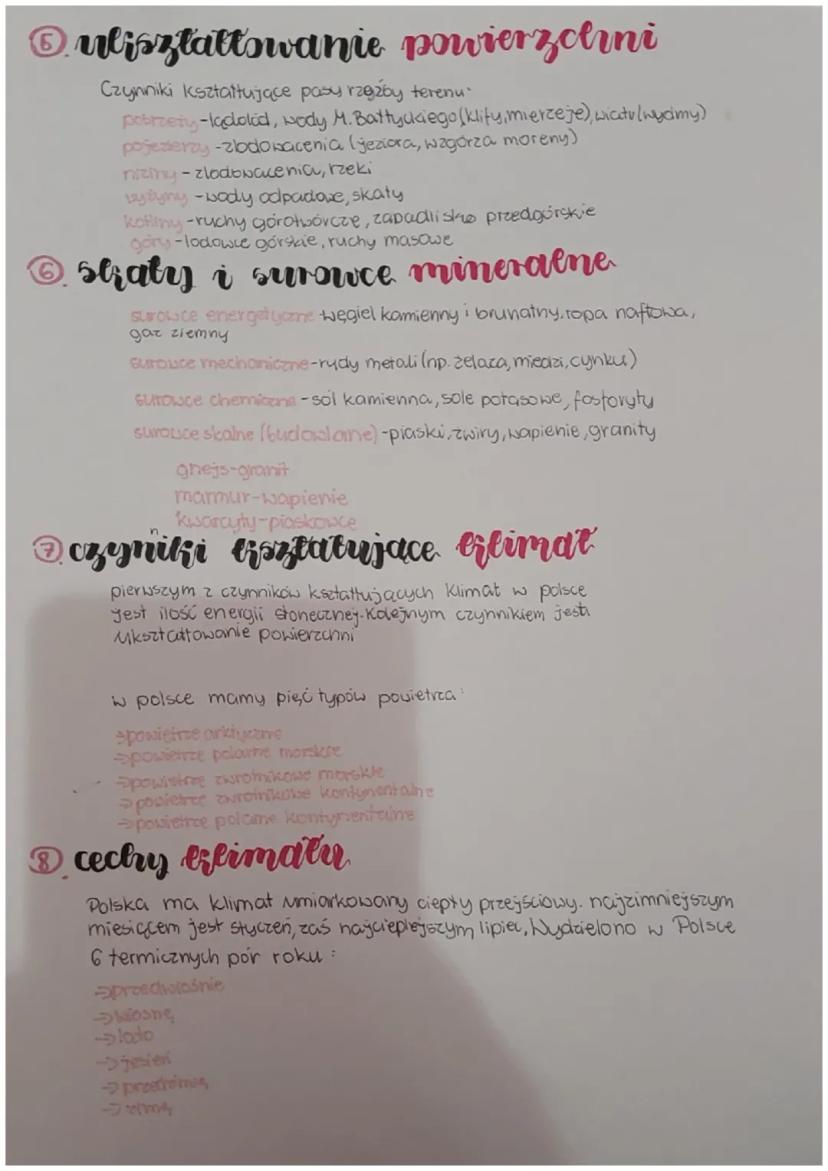 5. ukształtowanie powierzchni
Czynniki kształtujące pasy rzeźby terenu:
pobrzeży-lądolód, wody M.Bałtyckiego(klify,mierzeje),wiatr(wydmy)
pojezierzy-zlodowacenia (jeziora, wzgórza moreny)
niziny-zlodowacenia, rzeki
wyżyny-wody odpadowe, skały
kotliny-ruchy górotwórcze, zapadlisko przedgórskie
góry-lodowce górskie, ruchy masowe
6. skały i surowce mineralne
surowce energetyczne-węgiel kamienny i brunatny, ropa naftowa,
gaz ziemny
surowce mechaniczne-rudy metali(np. żelaza, miedzi, cynku)
surowce chemiczne-sól kamienna, sole potasowe, fosforyty
surowce skalne (budowlane)-piaski, żwiry, wapienie, granity
gnejs-granit
marmur-wapienie
kwarcyty-piaskowce
7. czynniki kształtujące klimat
pierwszym z czynników kształtujących klimat w polsce
jest ilość energii słonecznej. Kolejnym czynnikiem jest
Ukształtowanie powierzchni
w polsce mamy pięć typów powietrza:
→powietrze arktyczne
→powietrze polarne morskie
→powietrze zwrotnikowe morskie
→powietrze zwrotnikowe kontynentalne
→powietrze polarne kontynentalne
8. cechy klimatu
Polska ma klimat umiarkowany ciepły przejściowy. najzimniejszym
miesiącem jest styczeń, zaś najcieplejszym lipiec, Wydzielono w Polsce
6 termicznych pór roku:
→przedwiośnie
→wiosnę
→lato
→jesień
→przedzimę
→zimę